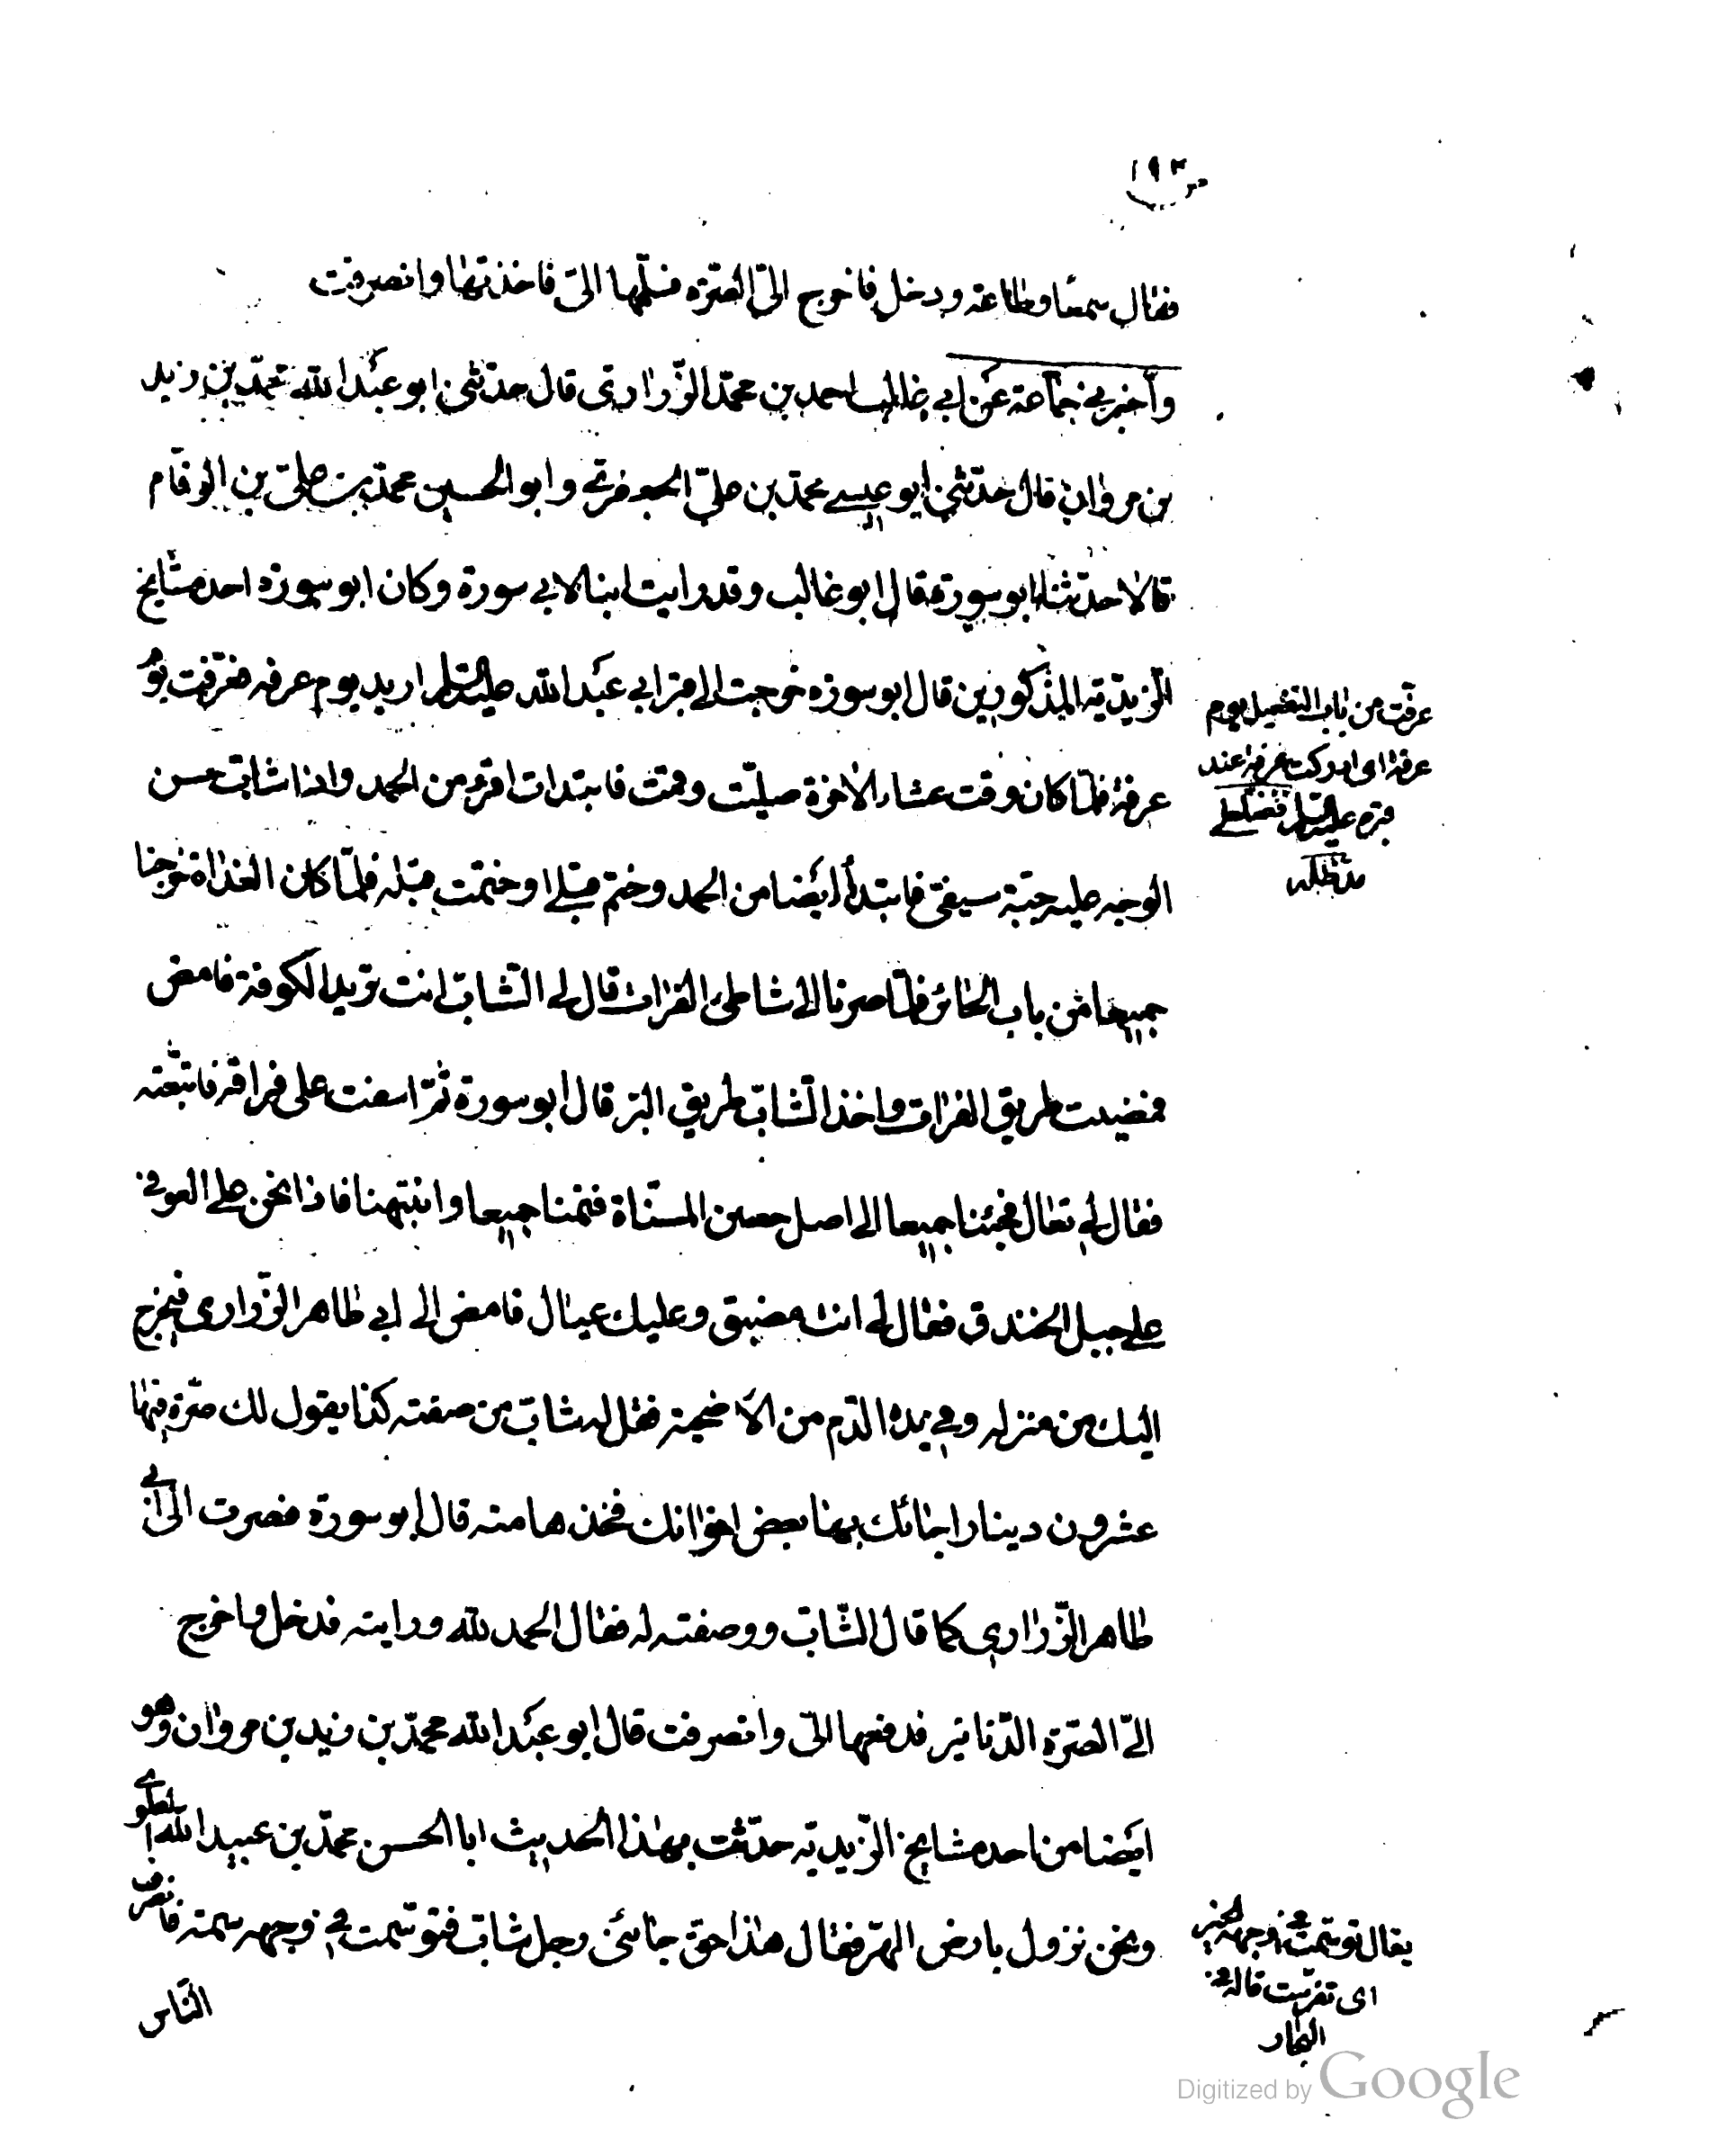 ١٩٣
فقال سمعا وطاعة ودخل فاخرج الىّ الصرّة فسلّمها الىّ فاخذتها وانصرفت
وأخبرنى جماعة عن ابى غالب احمد بن محمّد الزّرارى قال حدّثنى ابو عبد الله محمّد بن زيد
بن مروان قال حدّثنى ابو عيسى محمّد بن علىّ الجعفرى وابو الحسين محمّد بن على بن الرقام
قالا حدّثنا ابو سورة قال ابو غالب وقد رايت ابنا لابى سورة وكان ابو سورة احد مشايخ
الزيديّة المذكورين قال ابو سورة خرجت الى قبر ابى عبد الله عليه السلم اريد يوم عرفه فعرّفت يوم
عرفة فلمّا كان وقت عشاء الاخرة صليّت وقمت فابتدات اقرء من الحمد واذا شابّ حسن
الوجه عليه جبّة سيفىّ فابتدأ ايضا من الحمد وختم قبلى او ختمت قبله فلمّا كان الغداة خرجنا
جميعا من باب الحائر فلمّا صرنا الى شاطئ الفرات قال لى الشّابّ انت تريد الكوفة فامض
فمضيت طريق الفرات واخذ الشّابّ طريق البرّ قال ابو سورة ثمّ اسفت على فراقه فاتبعته
فقال لى تعال فجئنا جميعا الى اصل حصن المسنّاة فنمنا جميعا وانتبهنا فاذا نحن على العوفى
على جبل الخندق فقال لى انت مضيق وعليك عيال فامض الى ابى طاهر الزّرارى فيخرج
اليك من منزله وفى يده الدّم من الاضحية فقل له شابّ من صفته كذا يقول لك صرّة فيها
عشرون دينارا جائك بها بعض اخوانك فخذها منه قال ابو سورة فصرت الى ابى
طاهر الزّرارى كما قال الشّابّ ووصفته له فقال الحمد لله ورايته فدخل واخرج
الىّ الصرّة الدّنانير فدفعها الىّ وانصرفت قال ابو عبد الله محمّد بن زيد بن مروان وهو
ايضا من احد مشايخ الزّيديّة حدّثت بهذا الحديث ابا الحسن محمّد بن عبيد الله العلوى
ونحن نزول بارض الهرّ فقال هذا حق جائنى رجل شابّ فتوسّمت فى وجهه سمة فانصرف
الناس
عرفت من باب التفعيل يوم
عرفة اى ادركت عرفة عند
قبره عليه السلم
مد ظله
يقال توسّمت فى وجهه الخير
اى تفرّست قاله فى
البحار
Digitized by Google